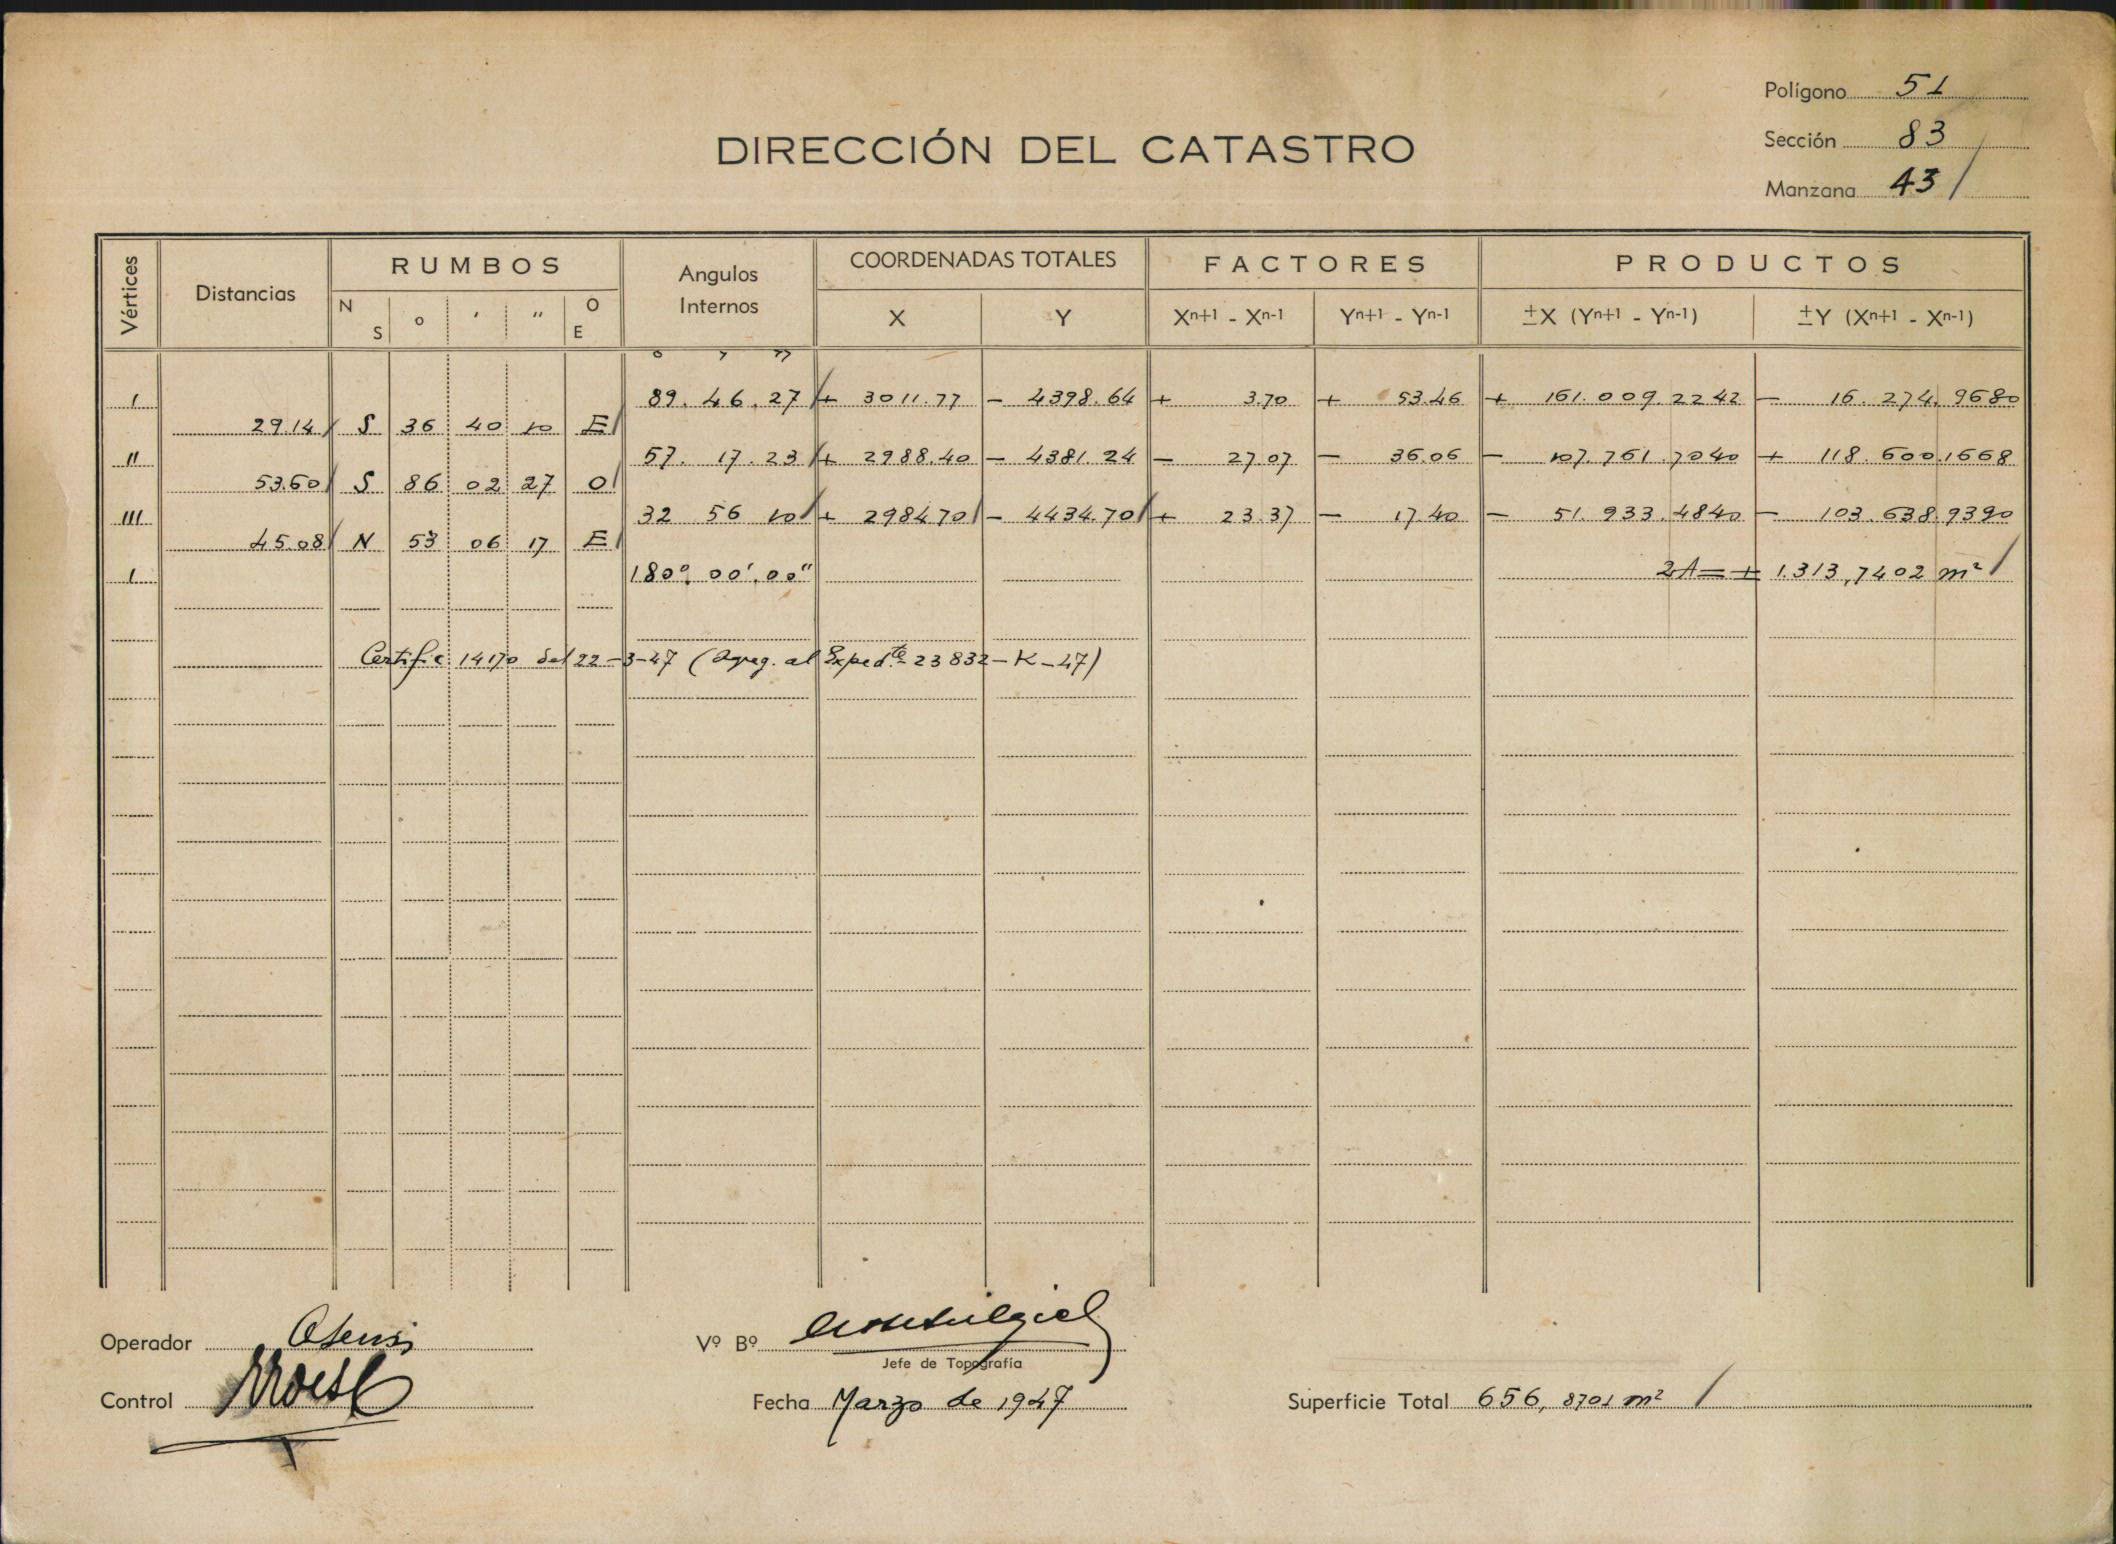 Polígono 51
DIRECCIÓN DEL CATASTRO
Sección 83
Manzana 43
Vértices Distancias RUMBOS Angulos Internos COORDENADAS TOTALES FACTORES PRODUCTOS
N S o ′ ″ O E X Y Xn+1 - Xn-1 Yn+1 - Yn-1 ±X (Yn+1 - Yn-1) ±Y (Xn+1 - Xn-1)
o ′ ″
I 89. 46. 27 + 3011.77 - 4398.64 + 3.70 + 53.46 + 161.009.2242 - 16.274.9680
29.14 S 36 40 10 E
II 57. 17. 23 + 2988.40 - 4381.24 - 27.07 - 36.06 - 107.761.7040 + 118.600.1668
53.60 S 86 02 27 O
III 32 56 10 + 2984.70 - 4434.70 + 23.37 - 17.40 - 51.933.4840 - 103.638.9390
45.08 N 53 06 17 E
I 180º.00'.00" 2A = + 1.313,7402 m²
Certific. 14170 del 22-3-47 (Agreg. al Exped.te 23832-K-47)
Operador
Vº Bº
Jefe de Topografía
Control
Fecha Marzo de 1947
Superficie Total 656,8701 m²